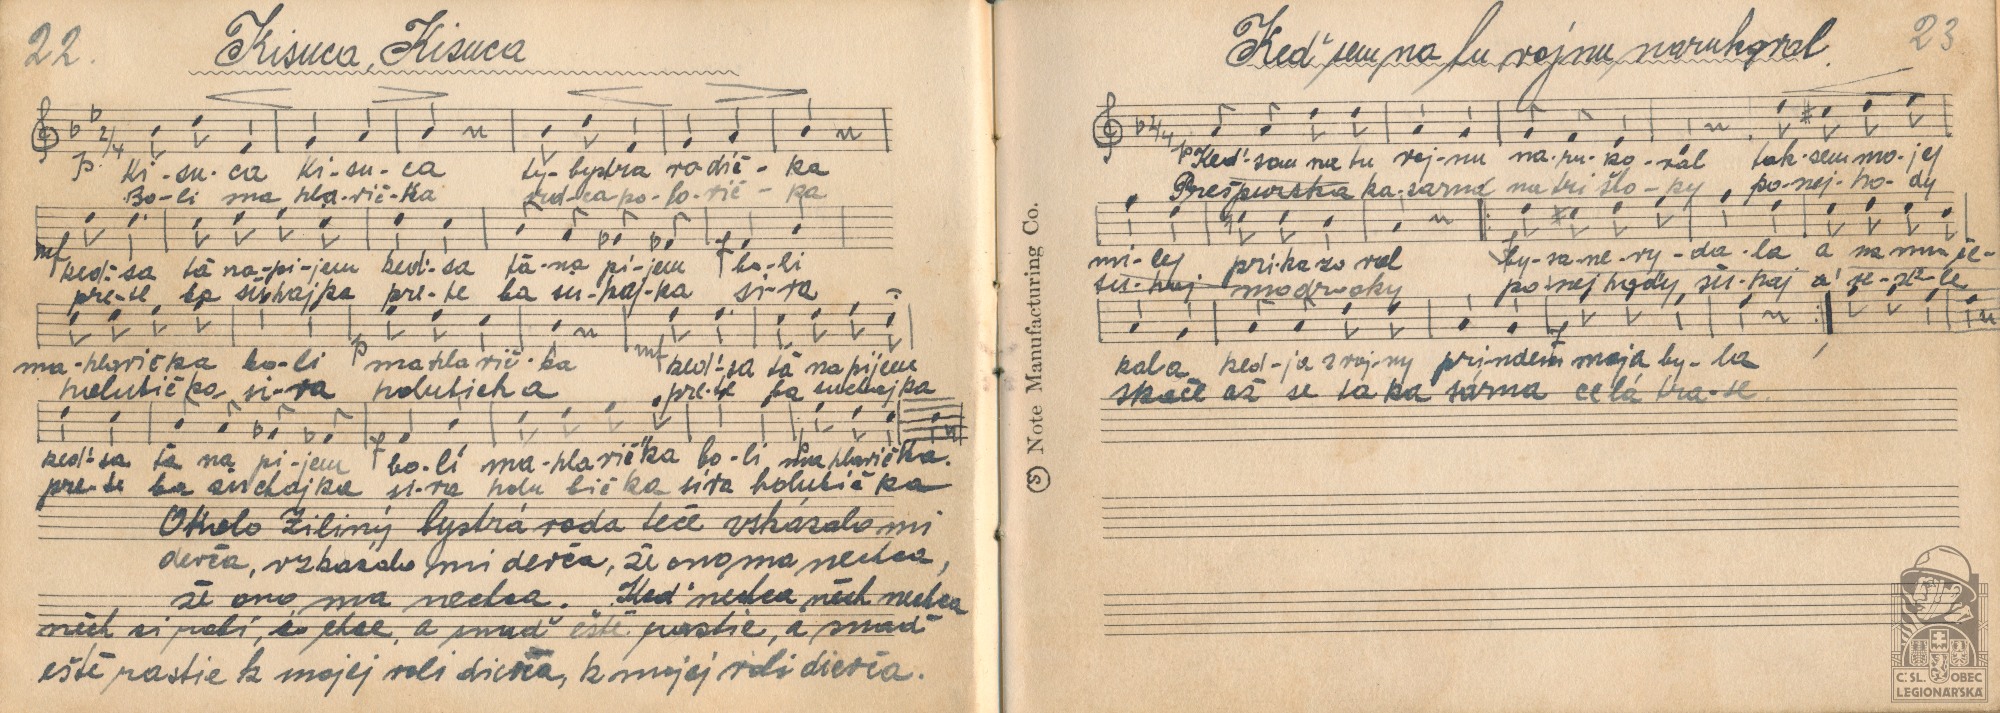 22.
Kisuca, Kisuca
2/4
p. Ki-su-ca Ki-su-ca by-bystra vodič-ka
Bo-li ma hla-vič-ka srd-ca po-lo-vič-ka
mf keď-sa tá na-pi-jem keď-sa tá-na pi-jem f bo-li
pre-te ba šuhajka pre-te ba su-haj-ka si-va
ma-hlavička bo-li p ma hla vič-ka mf keď-sa tá napijem
holubička si-va holubička pre-te ba suchajka
keď-sa tá na pi-jem f bo-lí ma-hlavička bo-li ma hlavička.
pre-te ba suchajka si-va holu bička siva holubička
Okolo Žiliny bystrá voda teče vskázalo mi
devča, vzkázalo mi devča, že ono ma nechca,
že ono ma nechca. Keď nechca nech nechca
něch si robí, čo chce, a snaď ešte rastie, a snaď
ešte rastie k mojej voli dievča, k mojej voli dievča.
Note Manufacturing Co.
23
Keď sem na tu vojnu narukoval.
2/4
p Keď-som na tu voj-nu na-ru-ko-val tak-sem mo-jej
Prešpurska ka-sarna na tri što-ky, po-nej-ho-dy
mi-lej pri-ka-zo val by-sa-ne-ry-da-la a na mňa če-
šu-haj modrooky po nej hody šu-haj a se-
kala keď-ja z voj-ny prijndem f moja by-la
skače až se ta ka sárna celá tra-se.
Č.SL. OBEC
LEGIONÁŘSKÁ